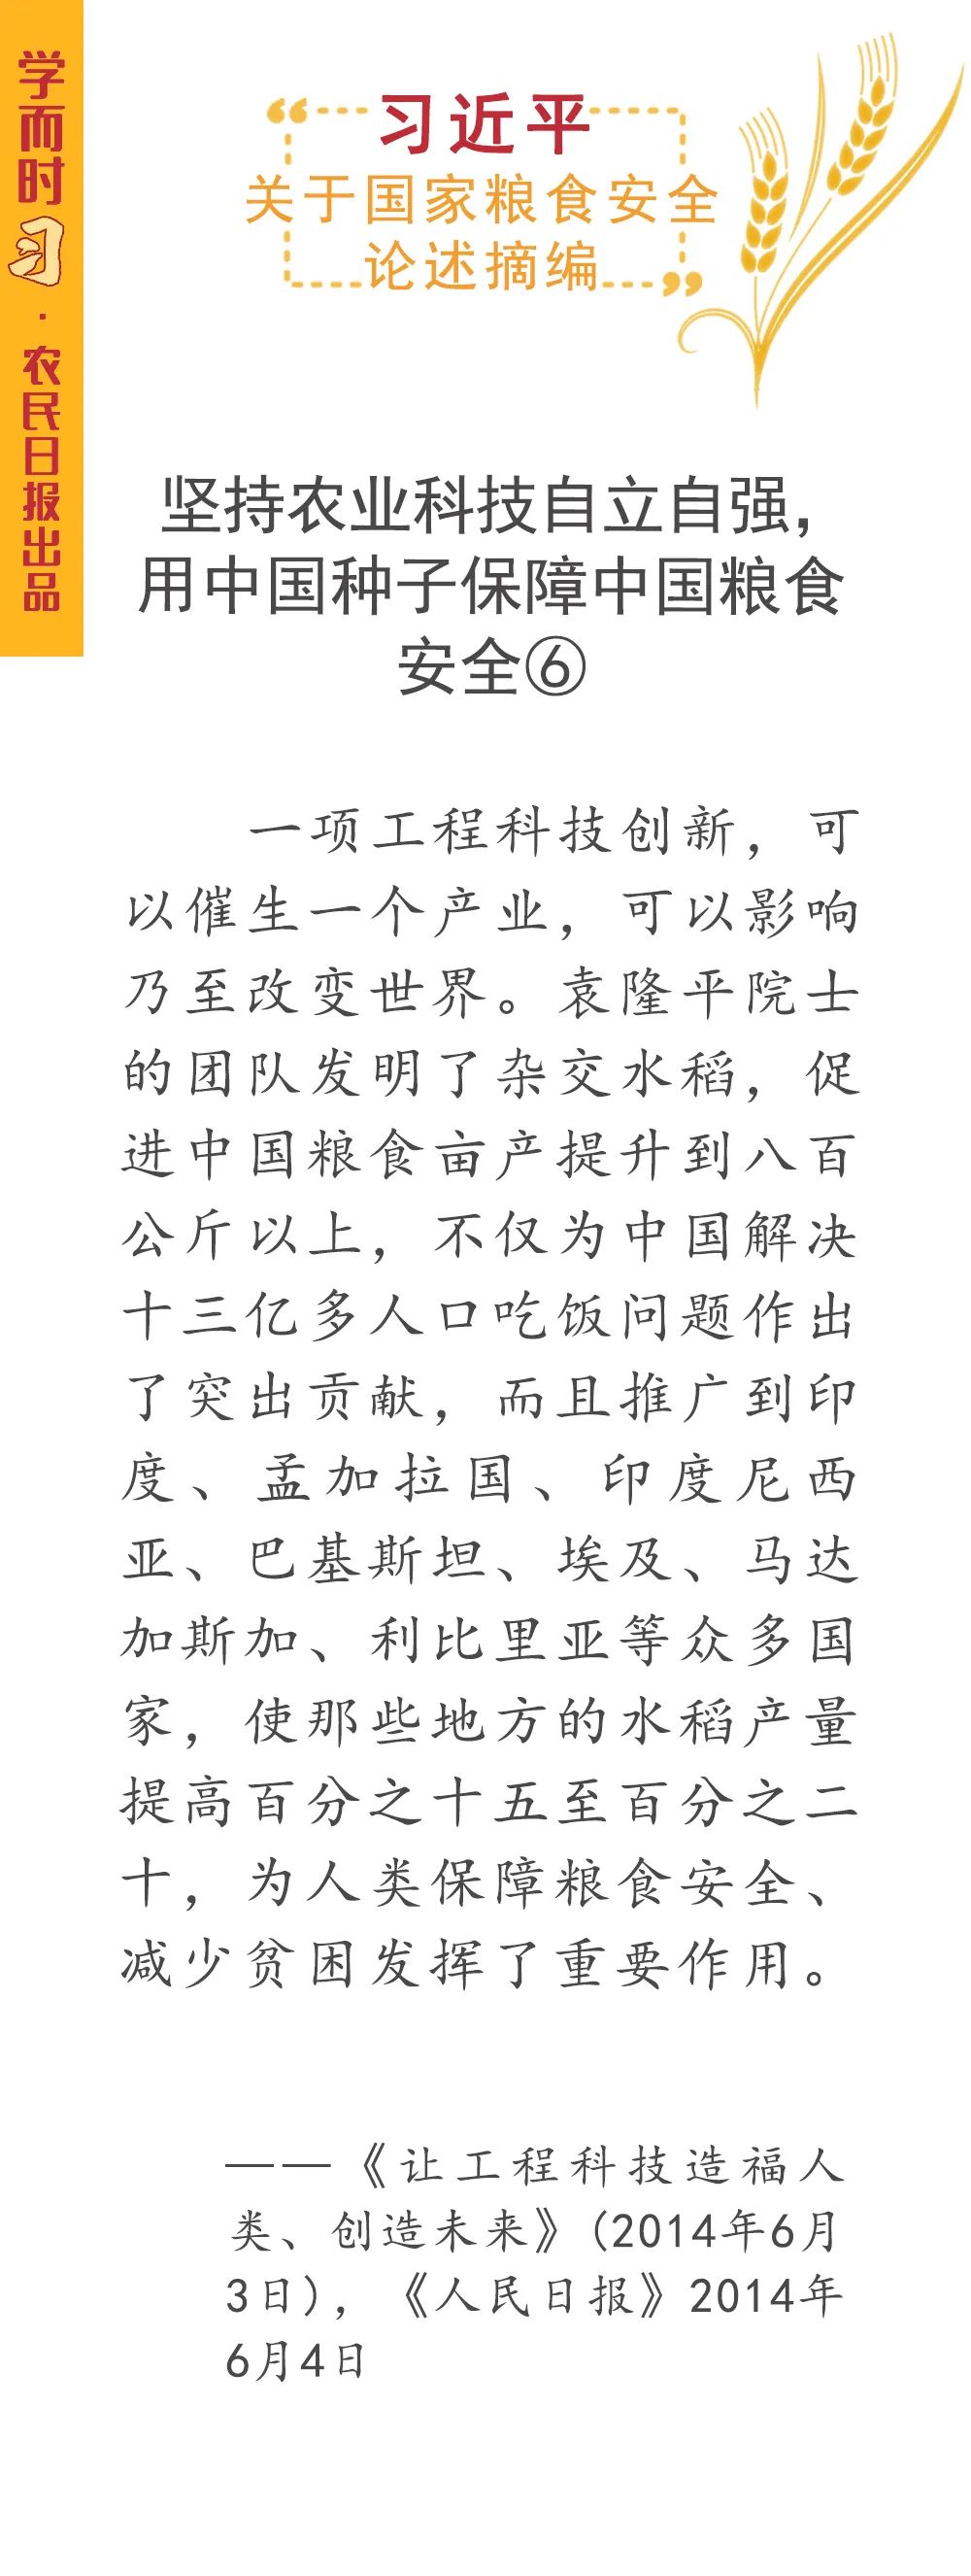 学而时习·农民日报出品
“习近平
关于国家粮食安全
论述摘编”
坚持农业科技自立自强，
用中国种子保障中国粮食
安全⑥
一项工程科技创新，可
以催生一个产业，可以影响
乃至改变世界。袁隆平院士
的团队发明了杂交水稻，促
进中国粮食亩产提升到八百
公斤以上，不仅为中国解决
十三亿多人口吃饭问题作出
了突出贡献，而且推广到印
度、孟加拉国、印度尼西
亚、巴基斯坦、埃及、马达
加斯加、利比里亚等众多国
家，使那些地方的水稻产量
提高百分之十五至百分之二
十，为人类保障粮食安全、
减少贫困发挥了重要作用。
——《让工程科技造福人
类、创造未来》(2014年6月
3日)，《人民日报》2014年
6月4日